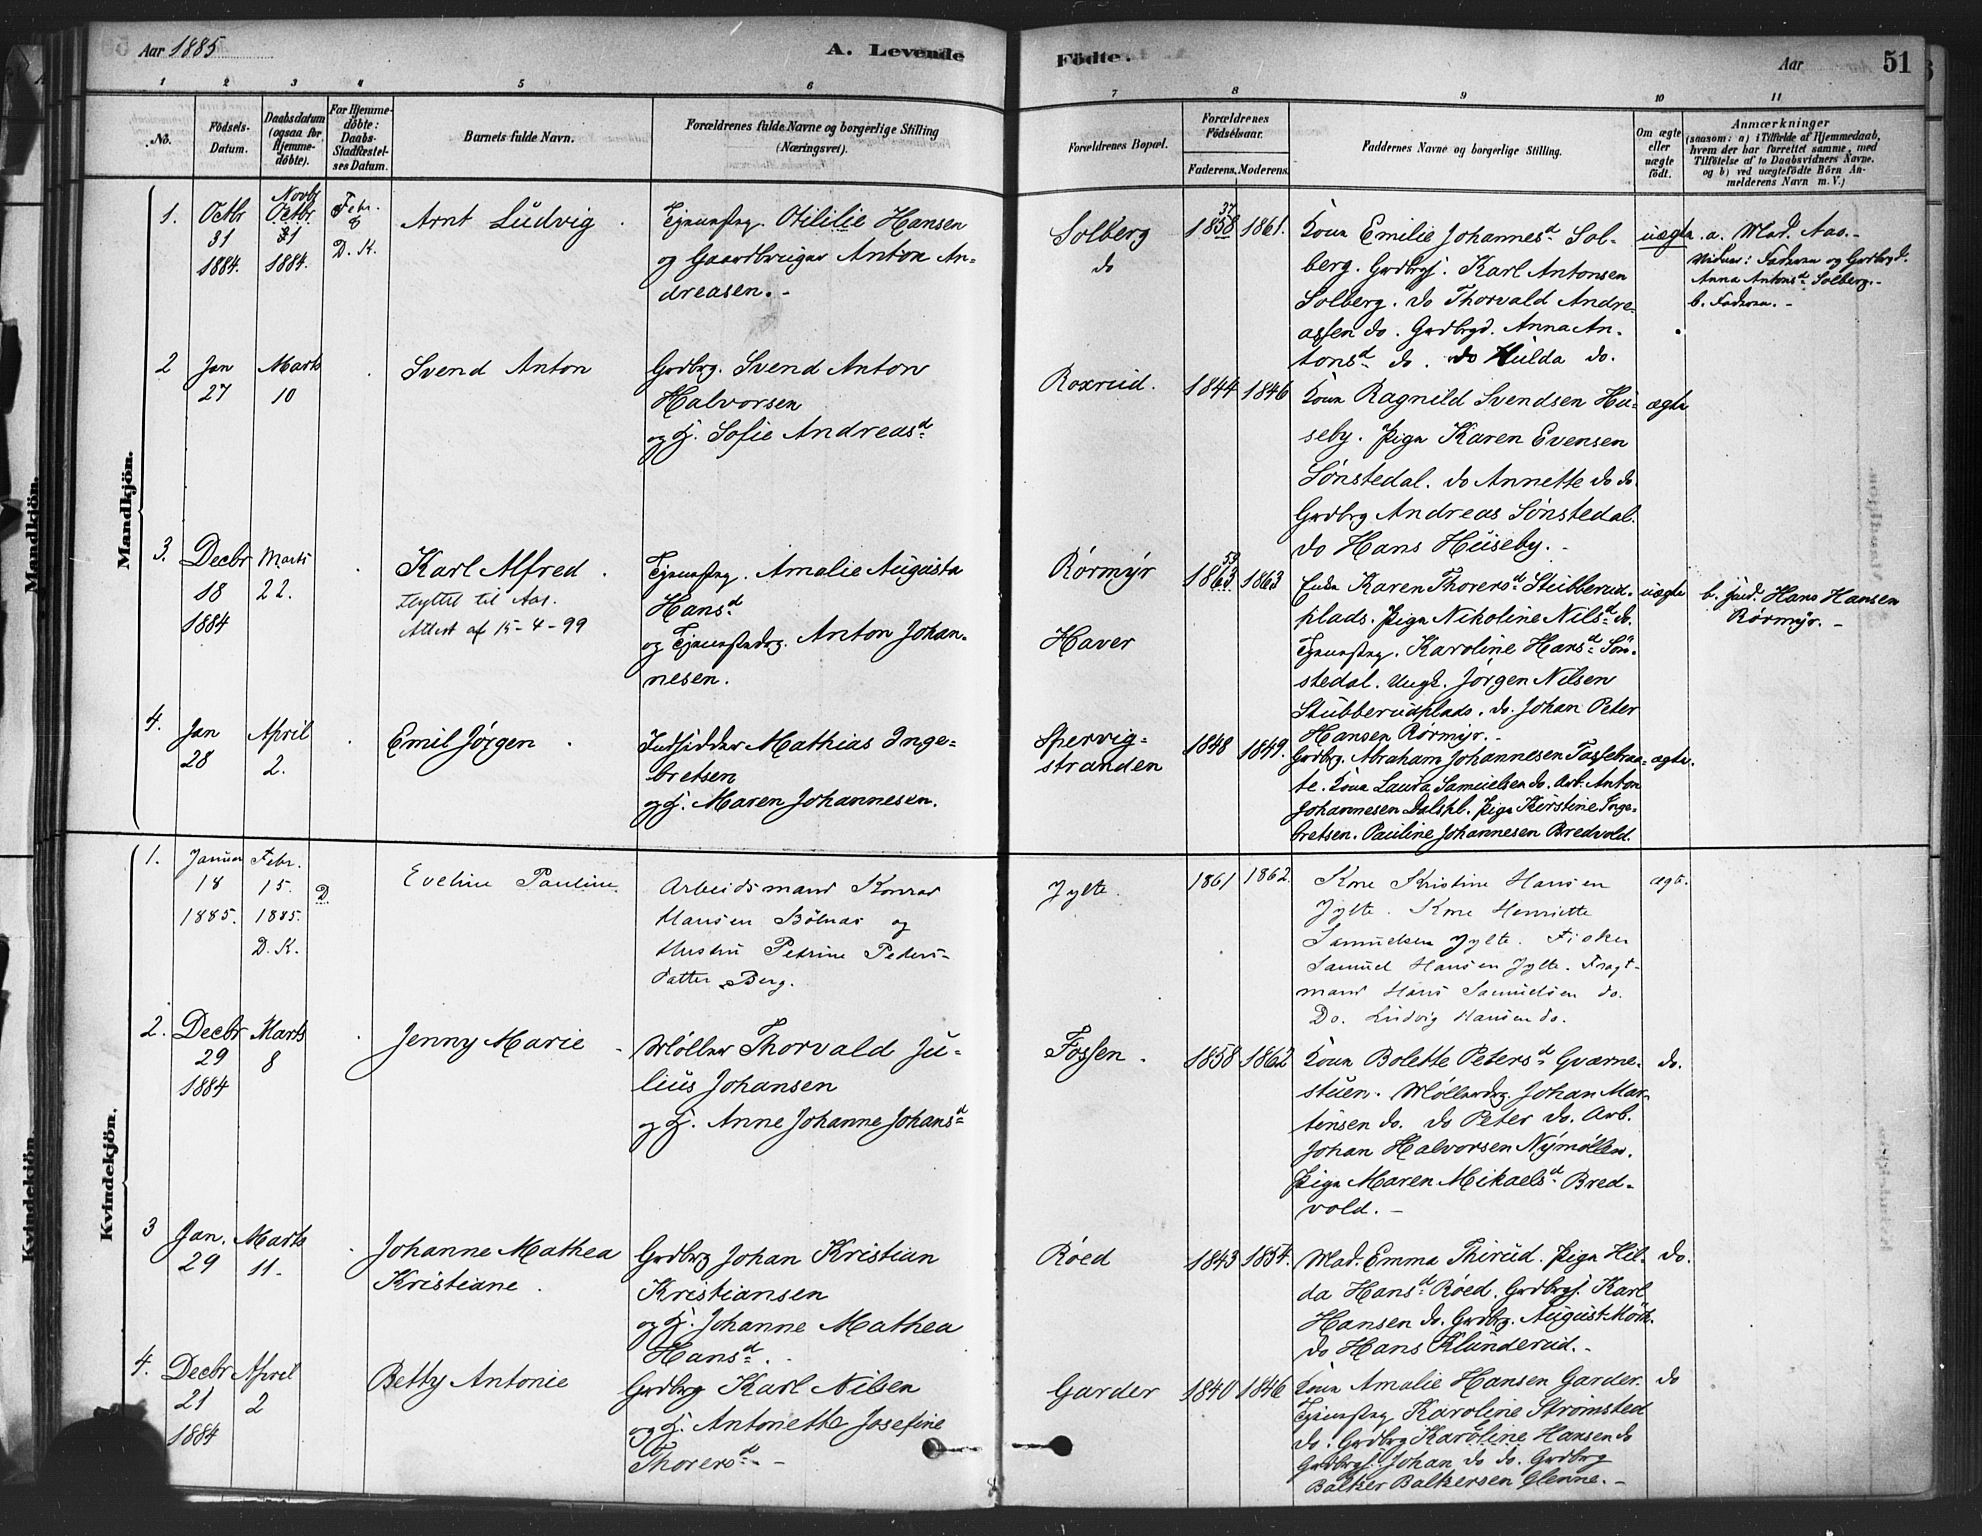 Aar 1885
A. Levende
Födte.
Aar
51
1 2 3 4 5 6 7 8 9 10 11
No.
Födsels-
Datum.
Daabsdatum
(ogsaa for
Hjemme-
döbte).
For Hjemme-
döbte:
Daabs-
Stadfæstel-
ses Datum.
Barnets fulde Navn.
Forældrenes fulde Navne og borgerlige Stilling
(Næringsvei).
Forældrenes Bopæl.
Forældrenes
Födselsaar.
Faderens.
Moderens.
Faddernes Navne og borgerlige Stilling.
Om ægte
eller
uægte
födt.
Anmærkninger
(saasom: a) i Tilfælde af Hjemmedaab,
hvem der har forrettet samme, med
Tilföielse af to Daabsvidners Navne.
og b) ved uægtefödte Börn An-
melderens Navn m. V.)
Mandkjön.
1.
Octbr
31
1884.
Novbr
Octbr
31
1884.
Febr.
8
D. K.
Arnt Ludvig
Tjenestpg. Otilie Hansen
og Gaardbruger Anton An-
dreasen.
Solberg
do
37
1858
1861.
Kone Emilie Johannesd Sol-
berg. Grdbrgs. Karl Antonsen
Solberg. do Thorvald Andre-
assen do. Grdbrgd. Anna An-
tonsd do. do Hulda do.
uægte
a. Mad. Aas.
Vidner: Faderen og Grdbrgd.
Anna Antonsd Solberg.
b. Faderen.
2
Jan
27
Marts
10
Svend Anton
Grdbrg. Svend Anton
Halvorsen
og H. Sofie Andreasd
Roxrud.
1844
1846
Kone Ragnild Svendsen Hu-
seby. Pige Karen Evensen
Sönstedal. do Annette do do.
Grdbrg Andreas Sönstedal.
do Hans Huseby.
ægte
3.
Decbr
18
1884
Marts
22.
Karl Alfred
Flyttet til Aas.
Attest af 15-4-99
Tjenestpg. Amalie Augusta
Hansd
og Tjenestedrg. Anton Johan-
nesen.
Rörmyr
Haver
59
1863
1863
Enke Karen Thorersd Stubberud-
plads. Pige Nikoline Nilsd do.
Tjenestpg. Karoline Hansd Sön-
stedal. Ungk. Jörgen Nilsen
Stubberudplads. do. Johan Peter
Hansen Rörmyr.
uægte
b. Inds. Hans Hansen
Rörmyr.
4.
Jan
28
April
2.
Emil Jörgen
Indsidder Mathias Inge-
bretsen
og H. Maren Johannesen.
Spervig-
stranden
1848
1849.
Grdbrg. Abraham Johannesen Tassebraa-
te. Kone Laura Samuelsen do. Arb. Anton
Johannesen Dalspl. Pige Kirstine Inge-
bretsen. Pauline Johannesen Bredvold.
ægte.
Kvindekjön.
1.
Januar
18
1885.
Febr.
15.
1885.
D. K.
D
Eveline Pauline
Arbeidsmand Konrad
Hansen Bölnæs og
Hustru Petrine Peders-
datter Berg.
Jylte.
1861
1862.
Kone Kristine Hansen
Jylte. Kone Henriette
Samuelsen Jylte. Fisker
Samuel Hansen Jylte. Fragt-
mand Hans Samuelsen do.
Do. Ludvig Hansen do.
ægt.
2.
Decbr
29
1884
Marts
8
Jenny Marie
Möller Thorvald Ju-
lius Johansen
og H. Anne Johanne Johansd
Fossen.
1858
1862
Kone Bolette Petersd Gværne-
stuen. Möllerdrg. Johan Mar-
tinsen do. do Peter do. Arb.
Johan Halvorsen Nymöllen.
Pige Maren Mikaelsd Bred-
vold.
do.
3
Jan.
29
Marts
11.
Johanne Mathea
Kristiane
Grdbrg Johan Kristian
Kristiansen
og H. Johanne Mathea
Hansd.
Röed
1843
1854.
Mad. Emma Thirud. Pige Hil-
da Hansd Röed. Grdbrgs. Karl
Hansen do. Grdbrg. August Mörk.
do Hans Klunderud.
do.
4.
Decbr
21
1884
April
2
Betty Antonie
Grdbrg Karl Nilsen
og H. Antonette Josefine
Thorersd
Garder
1840
1846
Kone Amalie Hansen Garder.
Tjenestpg Karoline Strömsted
do. Grdbrg Karoline Hansen do
Grdbrgs. Johan do do. Grdbrg
Baltzer Baltzersen Glenne.
do